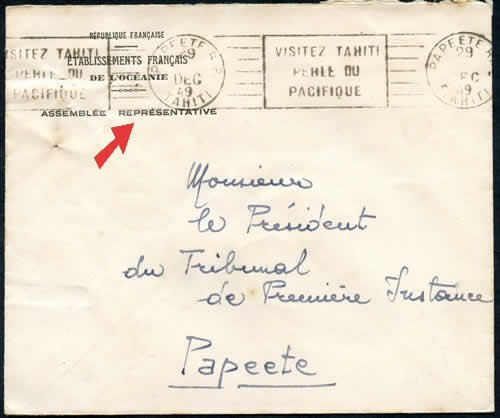 RÉPUBLIQUE FRANÇAISE
ÉTABLISSEMENTS FRANÇAIS
DE L'OCÉANIE
ASSEMBLÉE REPRÉSENTATIVE
VISITEZ TAHITI
PERLE DU
PACIFIQUE
PAPEETE R.P.
29
DEC
49
TAHITI
VISITEZ TAHITI
PERLE DU
PACIFIQUE
PAPEETE R
29
DEC
49
TAHITI
Monsieur
le Président
du Tribunal
de Première Instance
Papeete